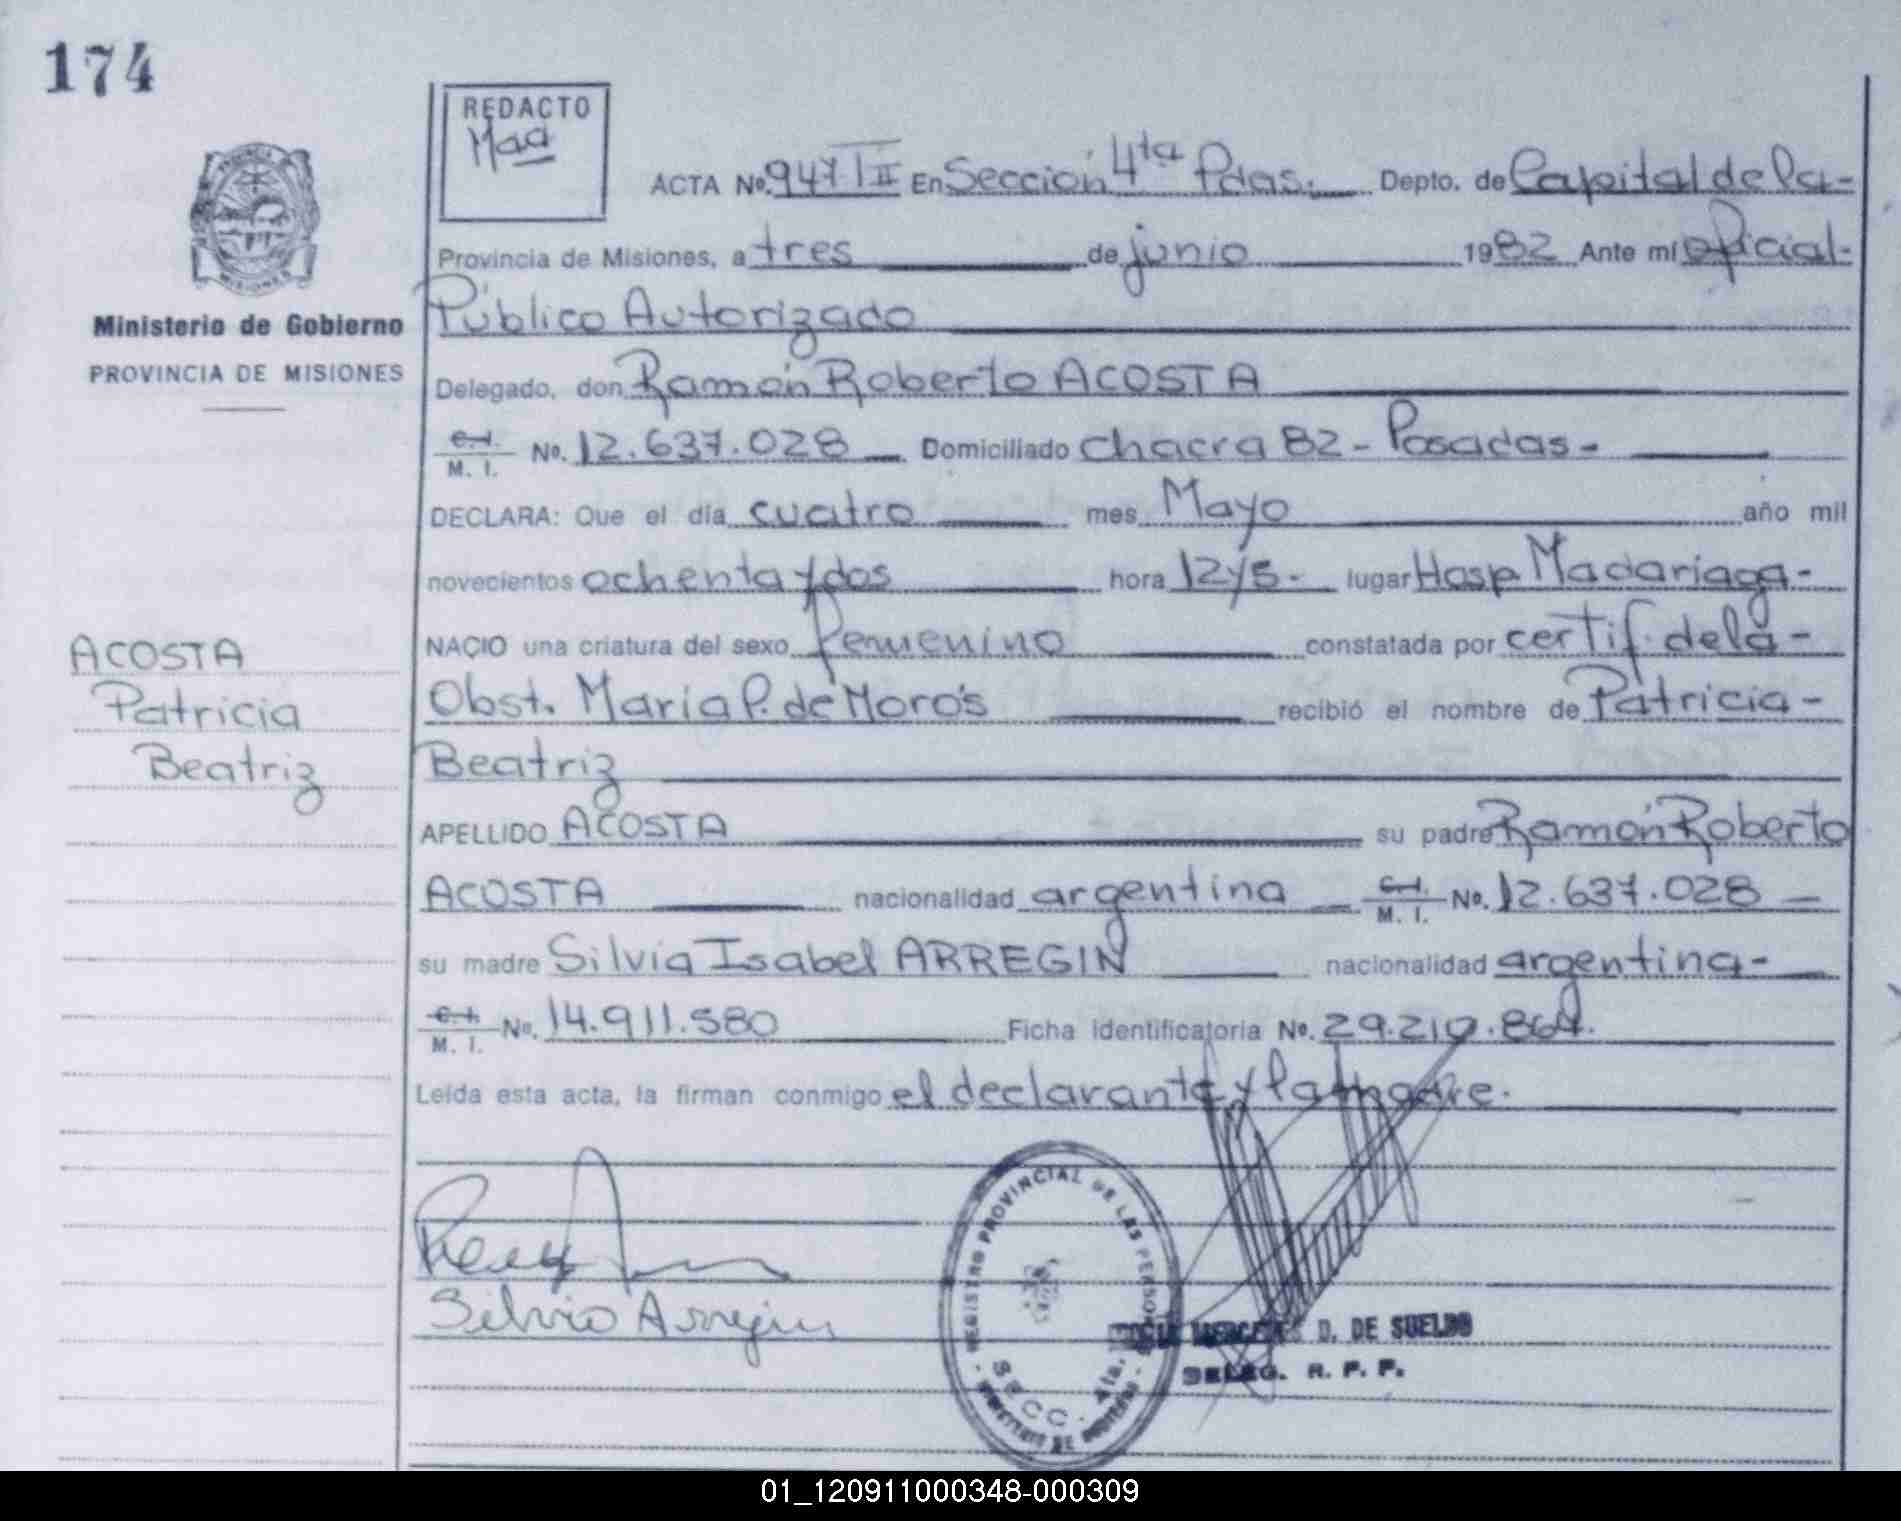 174
REDACTO
Maa
ACTA No. 947 T II En Sección 4ta Pdas. Depto. de Capital de la-
Provincia de Misiones, a tres de junio 1982 Ante mí oficial-
Ministerio de Gobierno
PROVINCIA DE MISIONES
Público Autorizado
Delegado, don Ramón Roberto ACOSTA
C.I. M. I. No. 12.637.028 Domiciliado chacra 82 - Posadas -
DECLARA: Que el día cuatro mes Mayo año mil
novecientos ochenta y dos hora 12y5- lugar Hosp. Madariaga-
NACIO una criatura del sexo femenino constatada por certif. de la-
Obst. María P. de Morós recibió el nombre de Patricia-
Beatriz
ACOSTA
Patricia
Beatriz
APELLIDO ACOSTA su padre Ramón Roberto
ACOSTA nacionalidad argentina C.I. M. I. No. 12.637.028
su madre Silvia Isabel ARREGIN nacionalidad argentina-
C.I. M. I. No. 14.911.580 Ficha identificatoria No. 29.210.864.
Leída esta acta, la firman conmigo el declarante y la madre.
Silvia Arregin
REGISTRO PROVINCIAL DE LAS PERSONAS
SECC. 4ta.
MERCEDES D. DE SUELDO
DELEG. R. P. P.
01_120911000348-000309